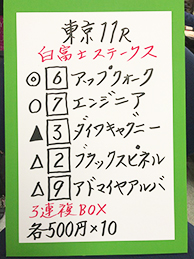 東京11R
白富士ステークス
◎ 6 アップクォーク
○ 7 エンジニア
▲ 3 ダイワキャグニー
△ 2 ブラックスピネル
△ 9 アドマイヤアルバ
3連複BOX
各500円×10